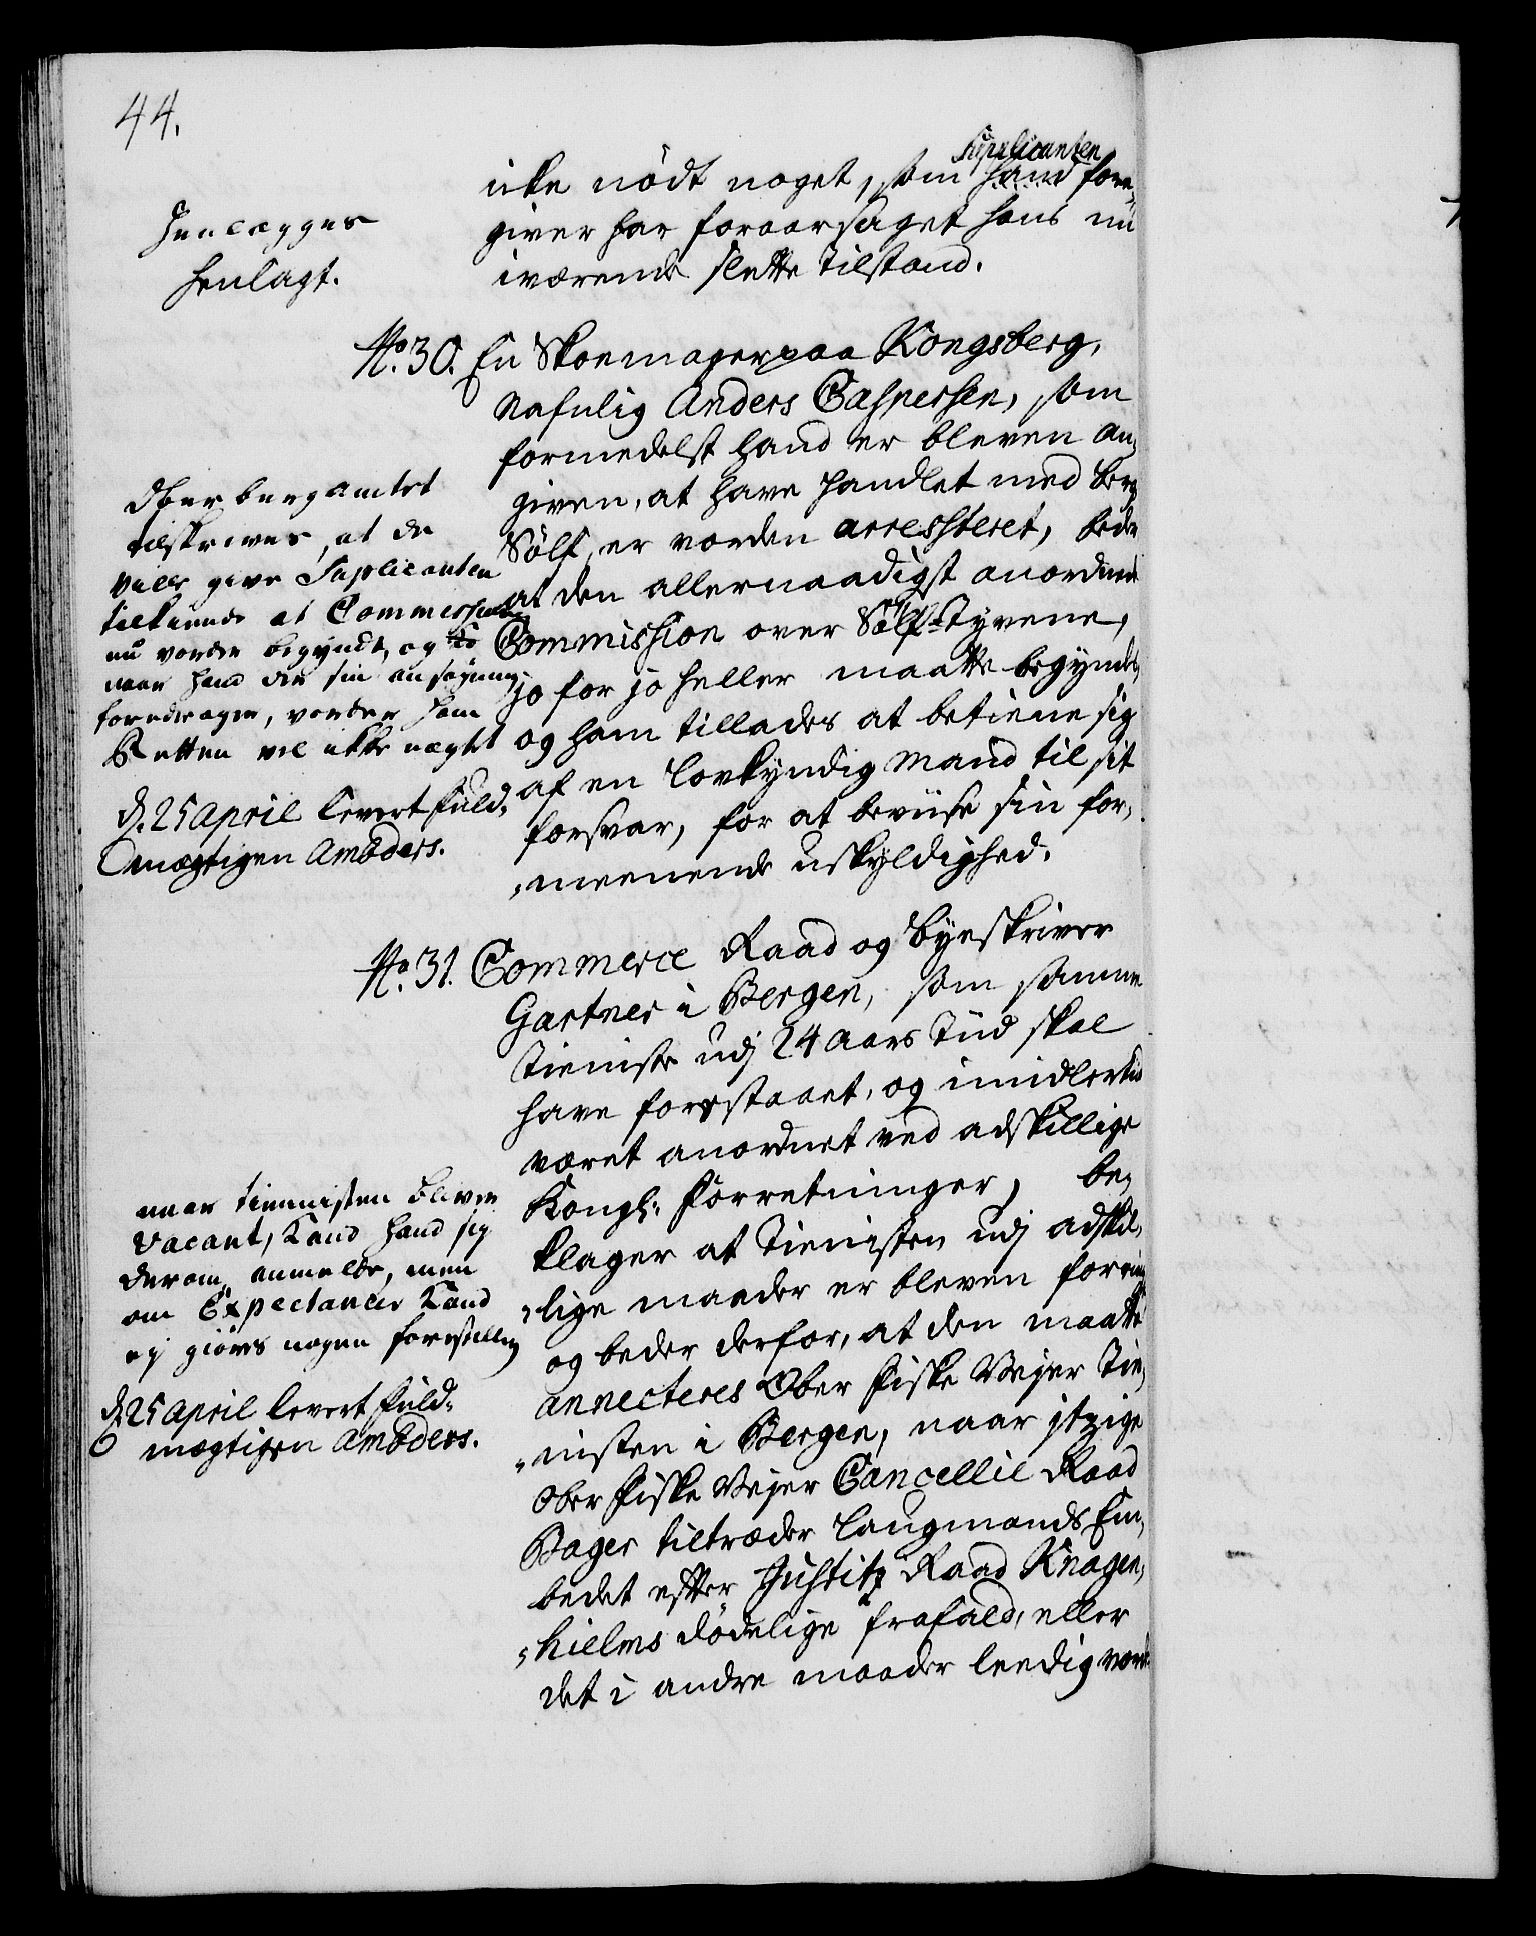 44.
Supplicanten
icke nödt noget, som hand fore,,
giver har foraarsaget hans nu
iværende slette Tilstand.
Henlægges
henlagt.
No. 30. En Skoemager paa Kongsberg,
Nafnlig Anders Caspersen, som
formedelst hand er bleven an,,
given, at have handlet med Berg
Sölf, er vorden arresteret, beder
at den allernaadigst anordnede
Commission over Sölf-Tyvene,
jo for jo heller maatte begyndes,
og ham tillades at betiene sig
af en Lovkyndig Mand til sit
forsvar, for at beviise sin for,,
,,meenende uskyldighed.
Ober bergamtet
tilskrives, at de
ville give Suplicanten
tilkiende at Commissionen
nu vorder begyndt, og
naar hand der sin ansøgning
foredrager, vorder ham
Retten vel ikke nægtet
d. 25 April levert fuld,,
mægtigen Ambders.
No. 31. Commerce Raad og Byeskriver
Gartner i Bergen, som samme
Tieniste udj 24 Aars Tiid skal
have forestaaet, og imidlertid
været anordnet ved adskillige
Kongl: Forretninger, be,,
klager at Tienisten udj adskil,,
,,lige maader er bleven forring
og beder derfor, at den maatte
annecteres Ober Fiske Vejer Tie,,
,,nisten i Bergen, naar jtzige
Ober Fiske Vejer Cancellie Raad
Bager tiltræder Laugmands Em,,
bedet efter Justitz Raad Knagen,,
,,hielms dödelige frafald, eller
det i andre maader leedig vord
naar tienisten bliver
vacant, kand hand sig
derom anmelde, men
om Expectancer kand
ej giöres nogen forestilling
d. 25 April levert fuld,,
mægtigen Ambders.